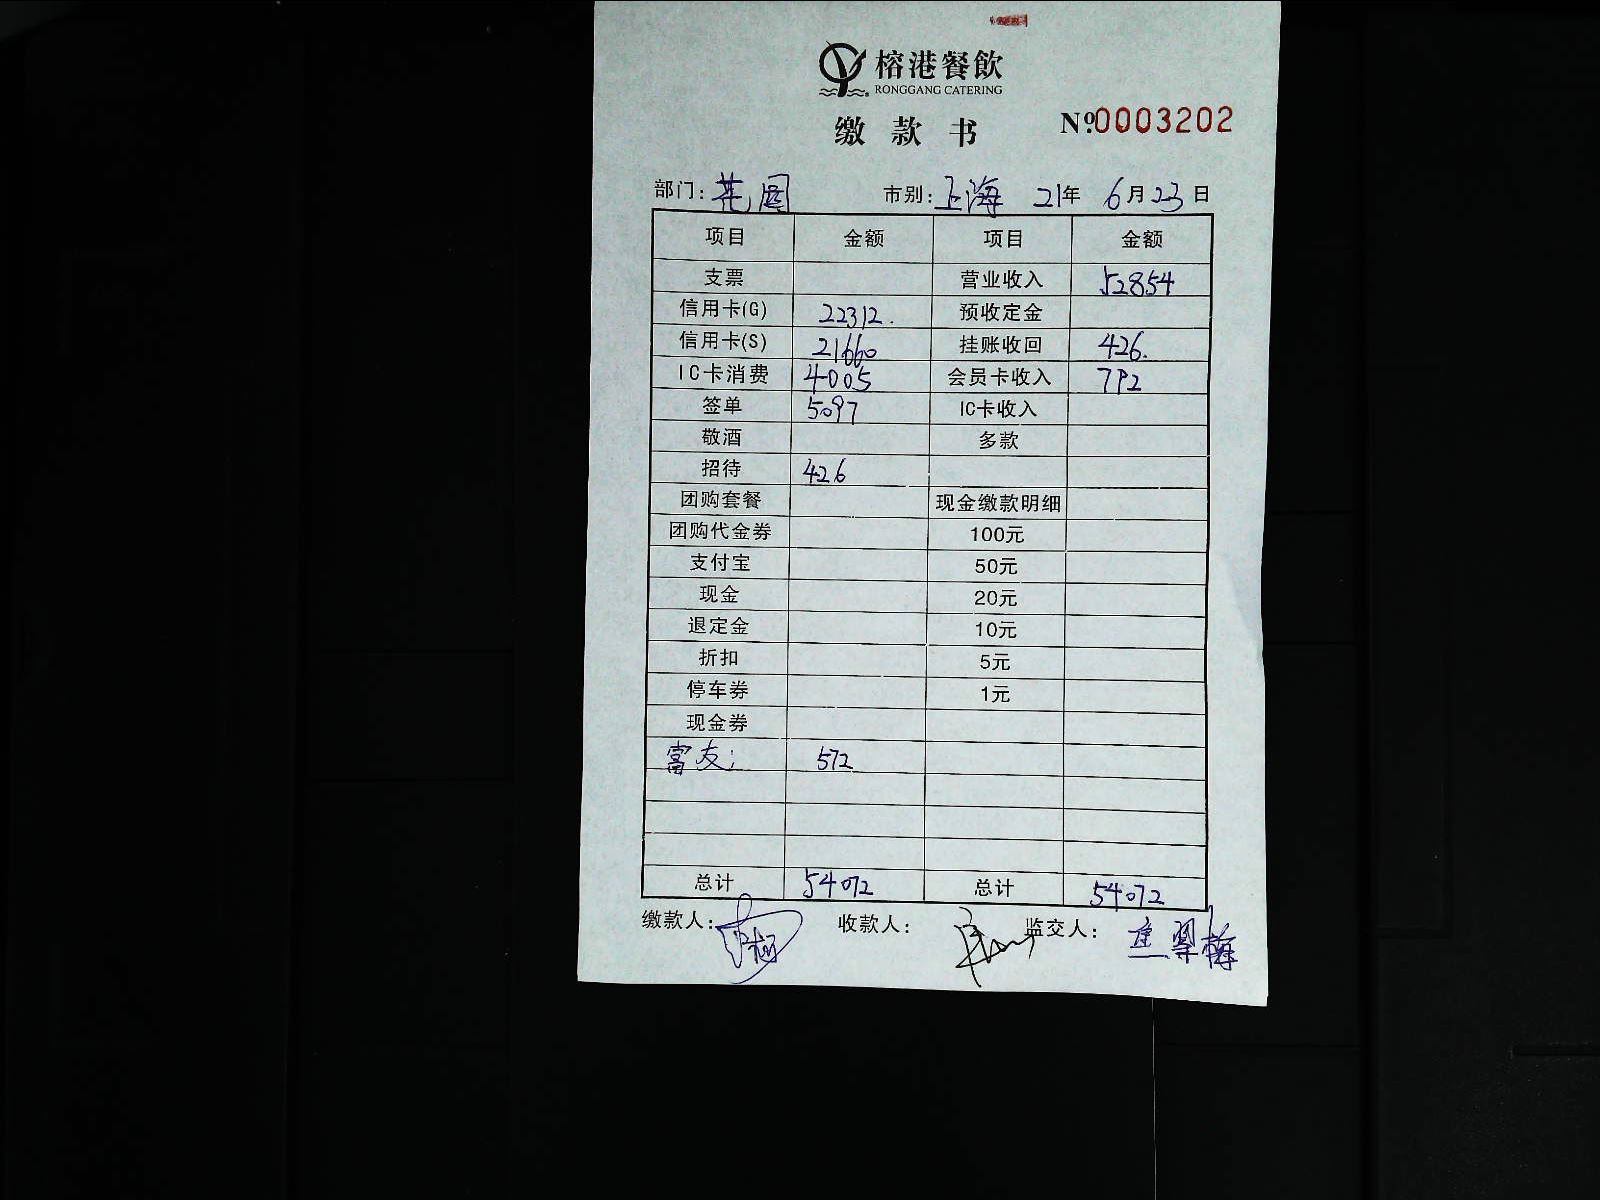 榕港餐飲
RONGGANG CATERING
缴款书
Nº0003202
部门: 花园 市别: 上海 21年 6月23日
项目 金额 项目 金额
支票 营业收入 52854
信用卡(G) 22312. 预收定金
信用卡(S) 21660 挂账收回 426.
IC卡消费 4005 会员卡收入 792
签单 5097 IC卡收入
敬酒 多款
招待 426
团购套餐 现金缴款明细
团购代金券 100元
支付宝 50元
现金 20元
退定金 10元
折扣 5元
停车券 1元
现金券
富友: 572
总计 54072 总计 54072
缴款人: 收款人: 监交人: